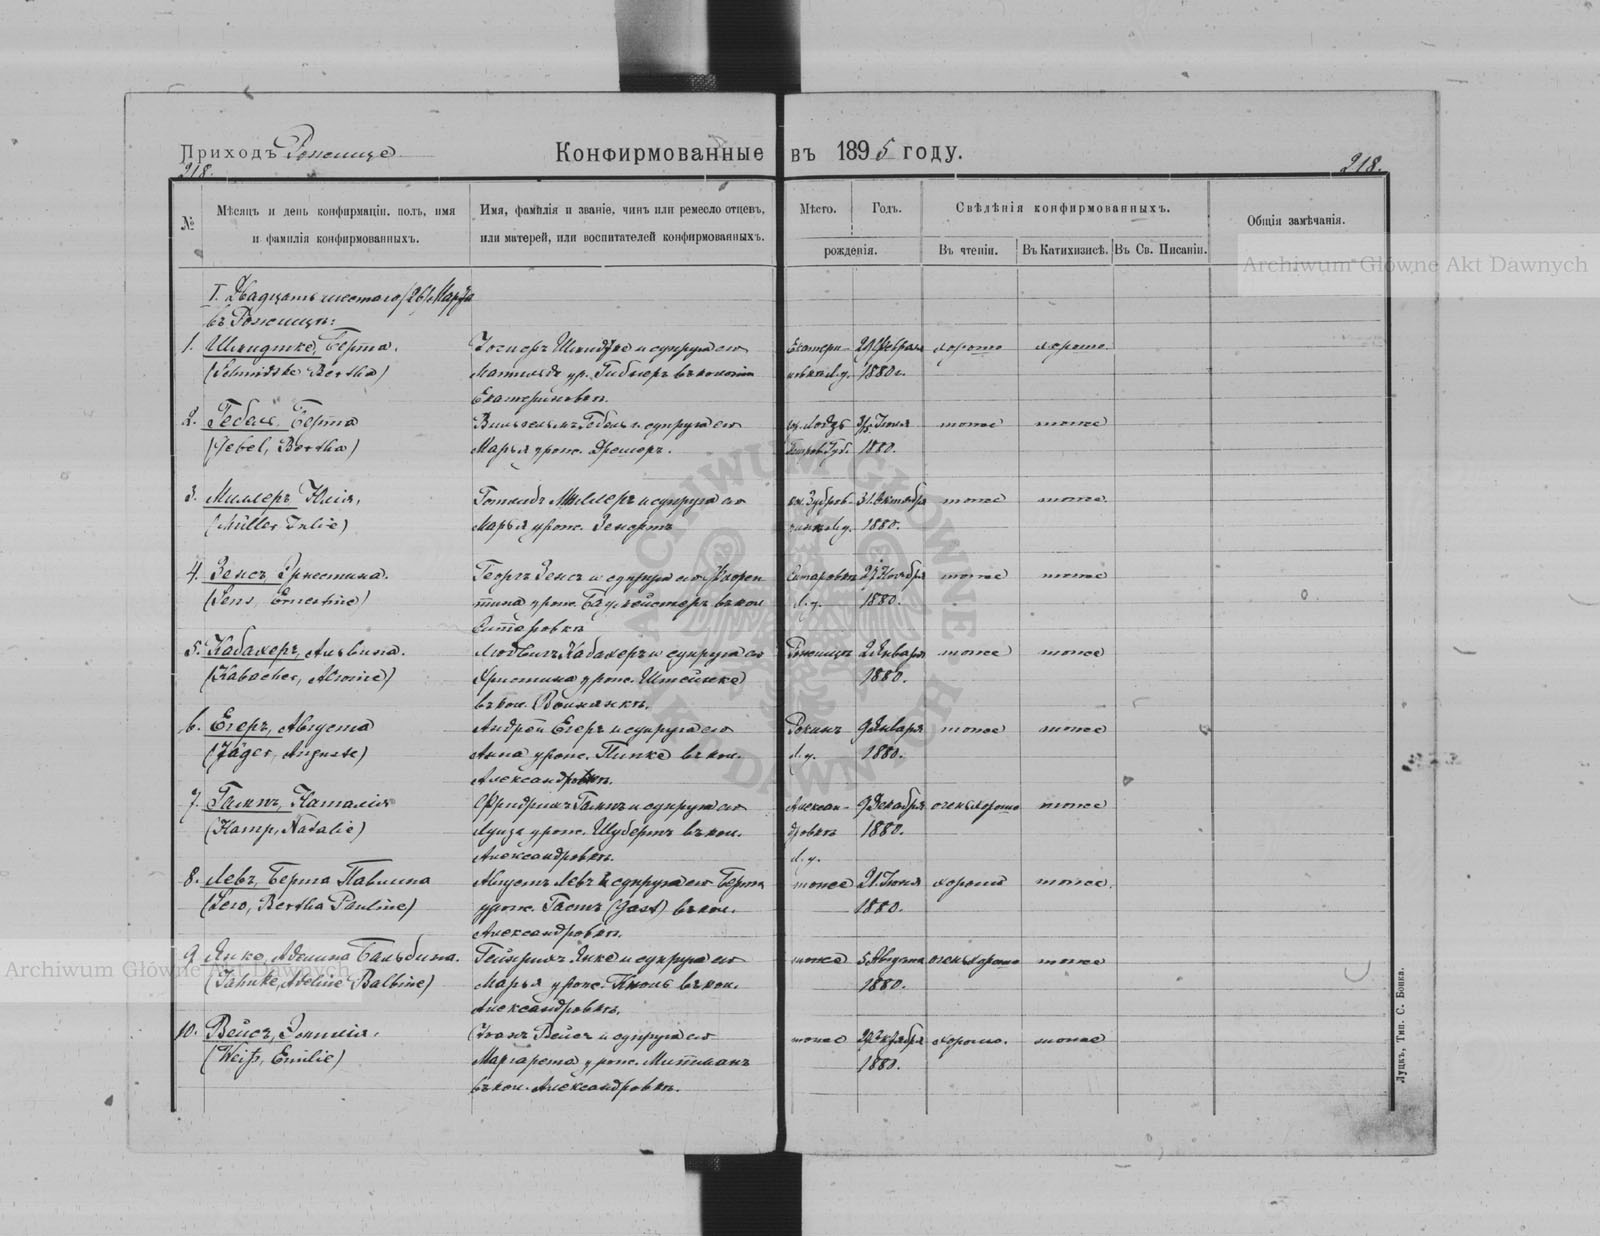 Приходъ Рожище Конфирмованные въ 1895 году.
218. 218.
№ Мѣсяцъ и день конфирмаціи. полъ, имя и фамилія конфирмованныхъ.
Имя, фамилія и званіе, чинъ или ремесло отцевъ, или матерей, или воспитателей конфирмованныхъ.
Мѣсто. Годъ. рожденія.
Свѣдѣнія конфирмованныхъ.
Въ чтеніи. Въ Катихизисѣ. Въ Св. Писаніи.
Общія замѣчанія.
I. Двадцать шестаго /26/ Марта
въ Рожищѣ:
1. Шмидтке, Берта. Шмидтке и супруга его Екатери- 29 Февраля хорошо хорошо.
(Schmidtke Bertha) Матильда ур. Гиблеръ въ колоніи новка л. у. 1880 г.
Екатериновкѣ.
2. Гебель, Берта Вильгельмъ Гебель и супруга его Лодзь Іюня тоже тоже
(Gebel, Bertha) Марья урож. Дрешеръ. Петров. Губ. 1880.
3. Миллеръ Юлія, Готлибъ Миллеръ и супруга его 31. Октября тоже тоже.
(Müller Julie) Марья урож. Зенертъ л. у. 1880.
4. Зенсъ, Эрнестина. Георгъ Зенсъ и супруга его Флорен- 29 Ноября тоже тоже
(Sens, Ernestine) тина урож. въ кол. л. у. 1880.
5. Кабахеръ, Альвина. Людвигъ Кабахеръ и супруга его Рожищѣ 2 Января тоже тоже
(Kabacher, Alwine) Христина урож. Штейнке 1880.
въ кол. Волнянкѣ.
6. Егеръ, Августа Андрей Егеръ и супруга его 9 Января тоже тоже
(Jäger, Auguste) Анна урож. Пинке въ кол. л. у. 1880.
Александровкѣ.
7. Гампъ, Наталія Фридрихъ Гампъ и супруга его Алексан- 9 Декабря очень хорошо тоже
(Hamp, Natalie) Луиза урож. Шубертъ въ кол. дровкѣ 1880.
Александровкѣ. л. у.
8. Левъ, Берта Павлина Августъ Левъ и супруга его Берта тоже 21. Іюня хорошо тоже.
(Lew, Bertha Pauline) урож. Гастъ (Gast) въ кол. 1880.
Александровкѣ.
9 Янке, Аделина Бальбина. Гейнрихъ Янке и супруга его тоже 5 Августа очень хорошо тоже
(Jahnke, Adeline Balbine) Марья урож. Кноль въ кол. 1880.
Александровкѣ.
10. Вейсъ, Эмилія. Іоаннъ Вейсъ и супруга его тоже 29 Октября хорошо. тоже
(Weiß, Emilie) Маргарета урож. Митманъ 1880.
въ кол. Александровкѣ.
Луцкъ, Тип. С. Бонка.
Archiwum Główne Akt Dawnych
Archiwum Główne Akt Dawnych
ARCHIWUM GŁÓWNE AKT DAWNYCH